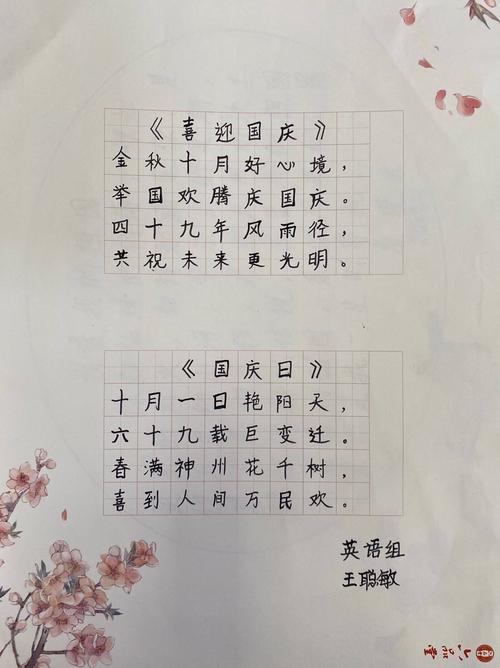 《喜迎国庆》
金秋十月好心境，
举国欢腾庆国庆。
四十九年风雨径，
共祝未来更光明。
《国庆日》
十月一日艳阳天，
六十九载巨变迁。
春满神州花千树，
喜到人间万民欢。
英语组
王聪敏